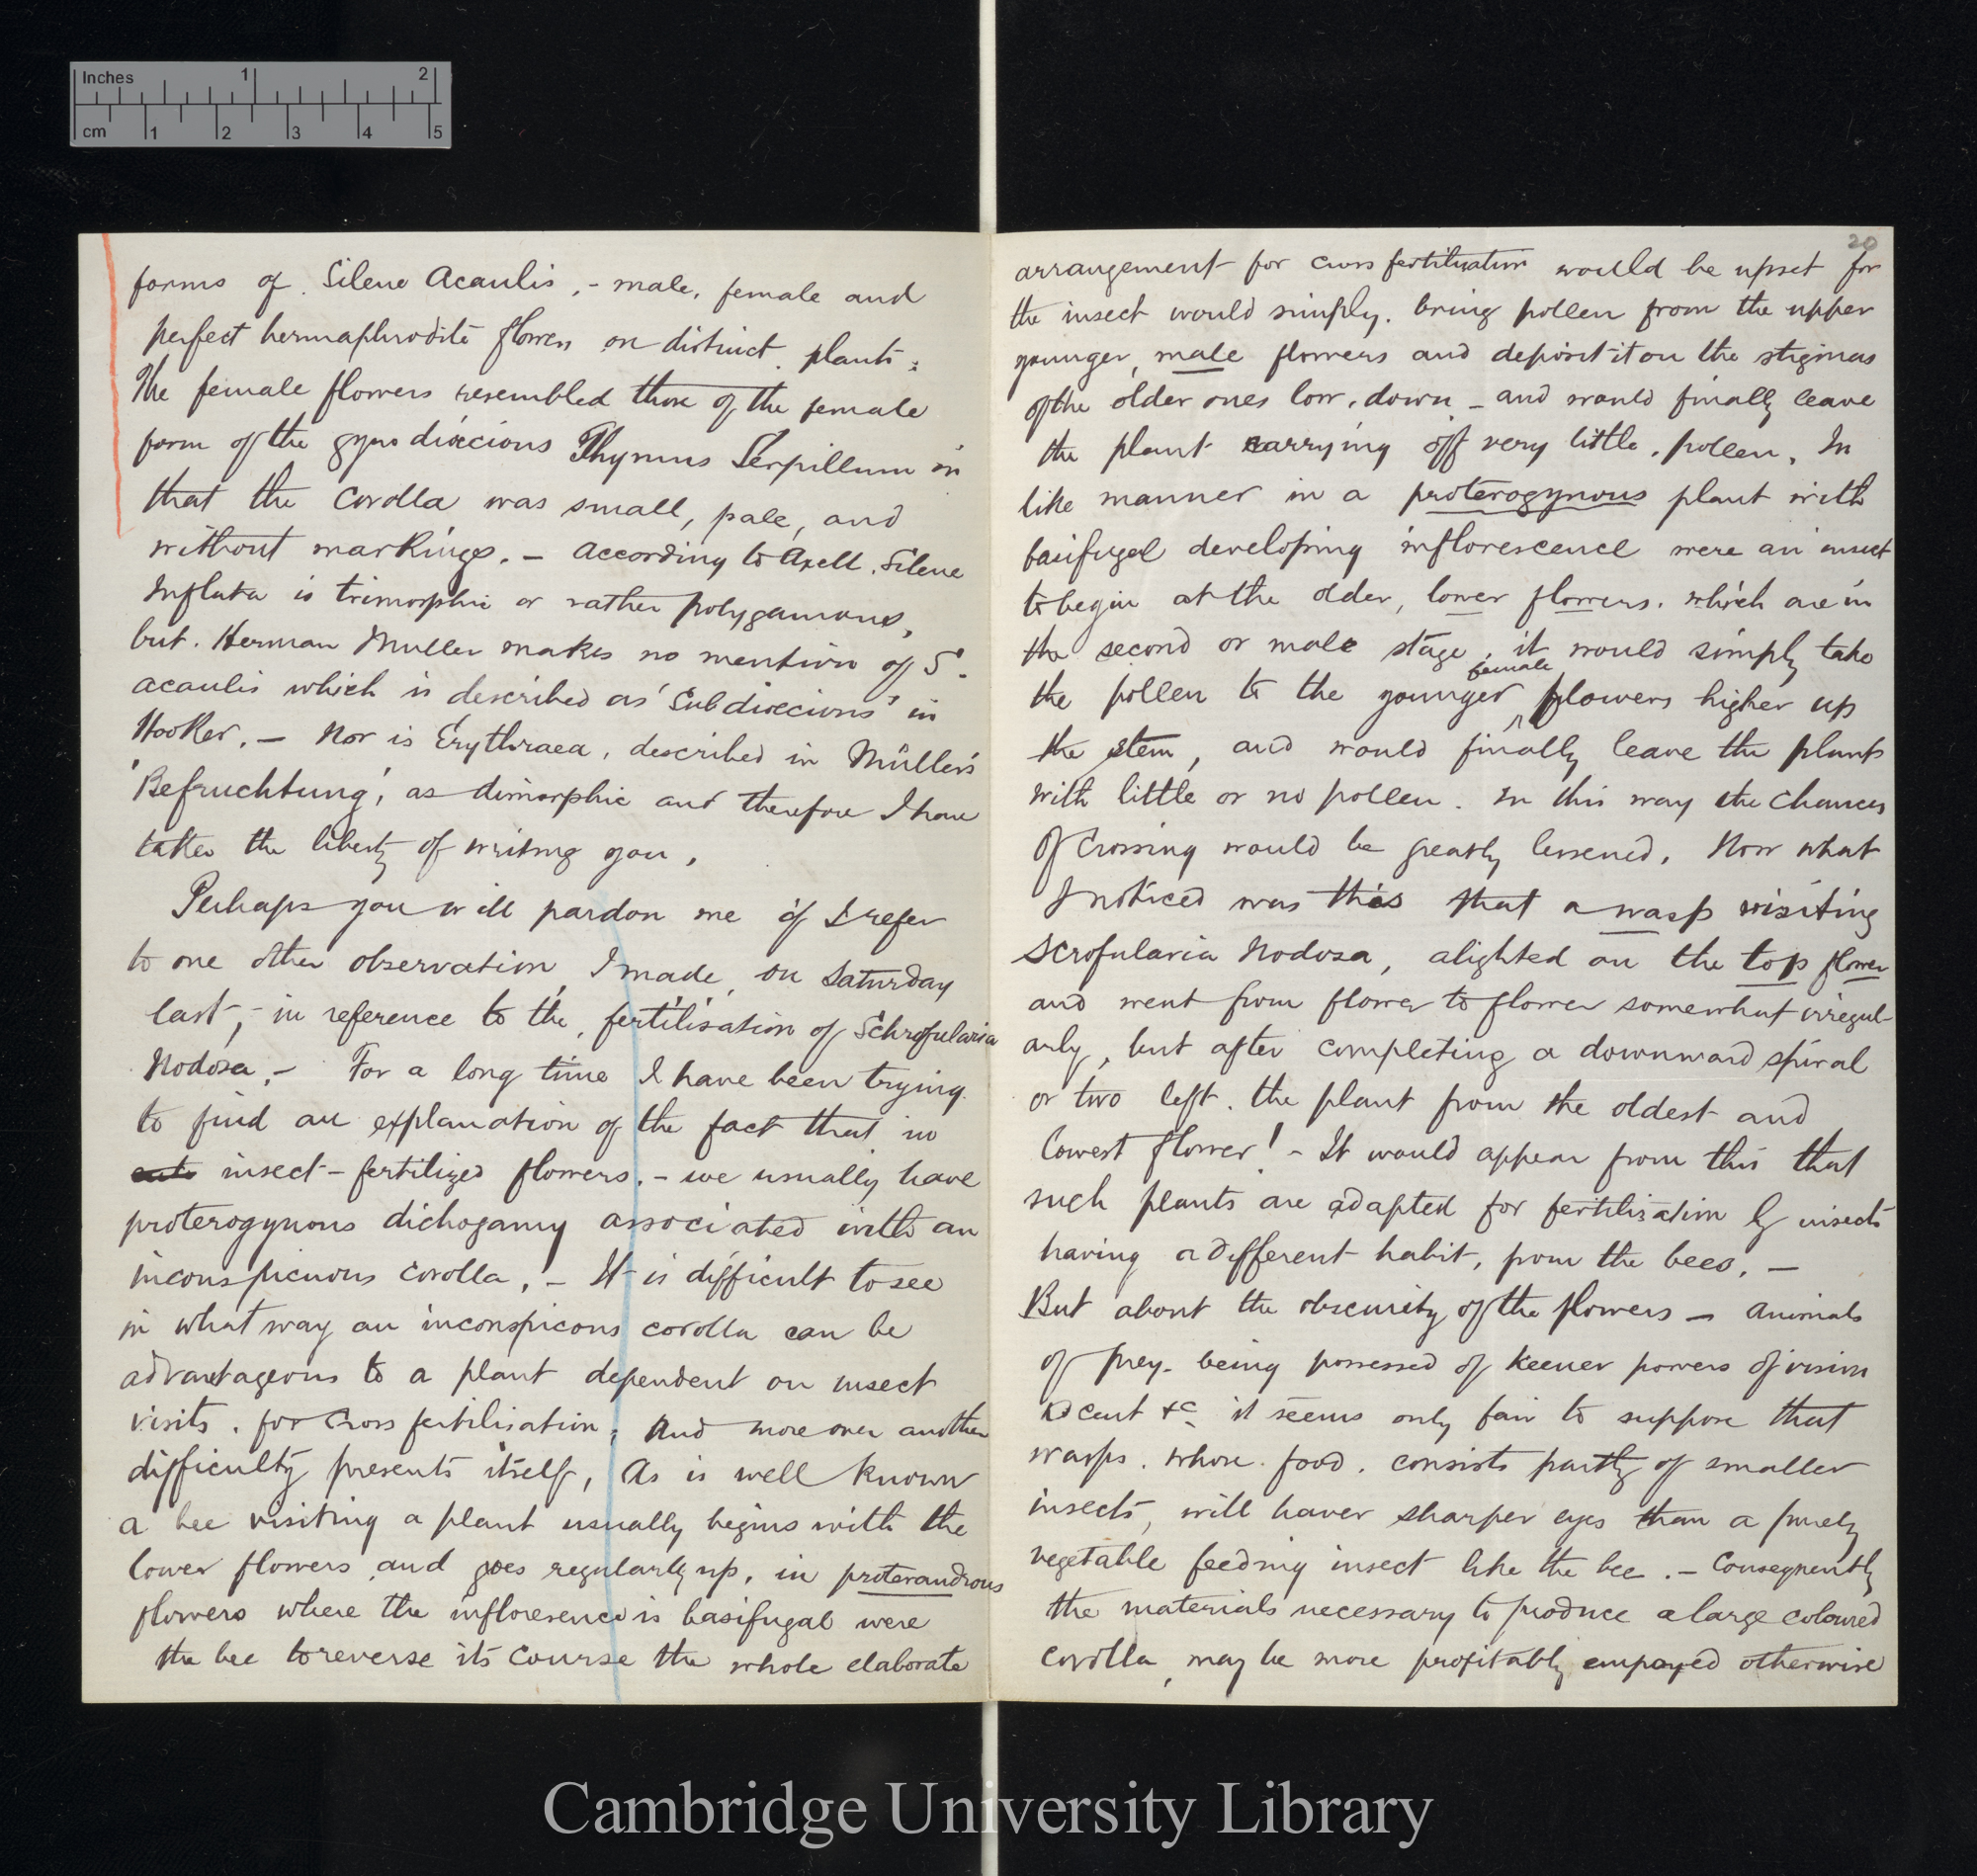 Inches 1 2
cm 1 2 3 4 5
forms of Silene Acaulis, - male, female and
perfect hermaphrodite flowers on distinct plants:
The female flowers resembled those of the female
form of the gynodiœcious Thymus Serpillum in
that the corolla was small, pale, and
without markings. - According to Axell, Silene
Inflata is trimorphic or rather polygamous,
but Herman Muller makes no mention of S.
acaulis which is described as 'Subdiœcious' in
Hooker. - Nor is Erythraea, described in Müller's
'Befruchtung', as dimorphic and therefore I have
taken the liberty of writing you.
Perhaps you will pardon me if I refer
to one other observation I made, on Saturday
last, - in reference to the fertilisation of Schrofularia
Nodosa. - For a long time I have been trying
to find an explanation of the fact that in
insect-fertilized flowers. - we usually have
proterogynous dichogamy associated with an
inconspicuous corolla. - It is difficult to see
in what way an inconspicous corolla can be
advantageous to a plant dependent on insect
visits. for cross fertilisation; And more over another
difficulty presents itself, As is well known
a bee visiting a plant usually begins with the
lower flowers and goes regularly up, in proterandrous
flowers where the infloresence is basifugal were
the bee to reverse its course the whole elaborate
20
arrangement for cross fertilization would be upset for
the insect would simply. bring pollen from the upper
younger, male flowers and deposit it on the stigmas
of the older ones low, down - and would finally leave
the plant carrying off very little, pollen. In
like manner in a proterogynous plant with
basifugal developing inflorescence were an insect
to begin at the older, lower flowers. which are in
the second or male stage, it would simply take
female
the pollen to the younger flowers higher up
the stem, and would finally leave the plants
with little or no pollen. In this way the chances
of crossing would be greatly lessened. Now what
I noticed was this that a wasp visiting
Scrofularia Nodosa, alighted on the top flower
and went from flower to flower somewhat irregul-
arly, but after completing a downward spiral
or two left. the plant from the oldest and
lowest flower! - It would appear from this that
such plants are adapted for fertilization by insects
having a different habit, from the bees. -
But about the obscurity of the flowers - animals
of prey. being possessed of keener powers of vision
scent &c it seems only fair to suppose that
wasps. whose. food. consists partly of smaller
insects, will haver sharper eyes than a purely
vegetable feeding insect like the bee. - Consequently
the materials necessary to produce a large coloured
corolla, may be more profitably empoyed otherwise
Cambridge University Library